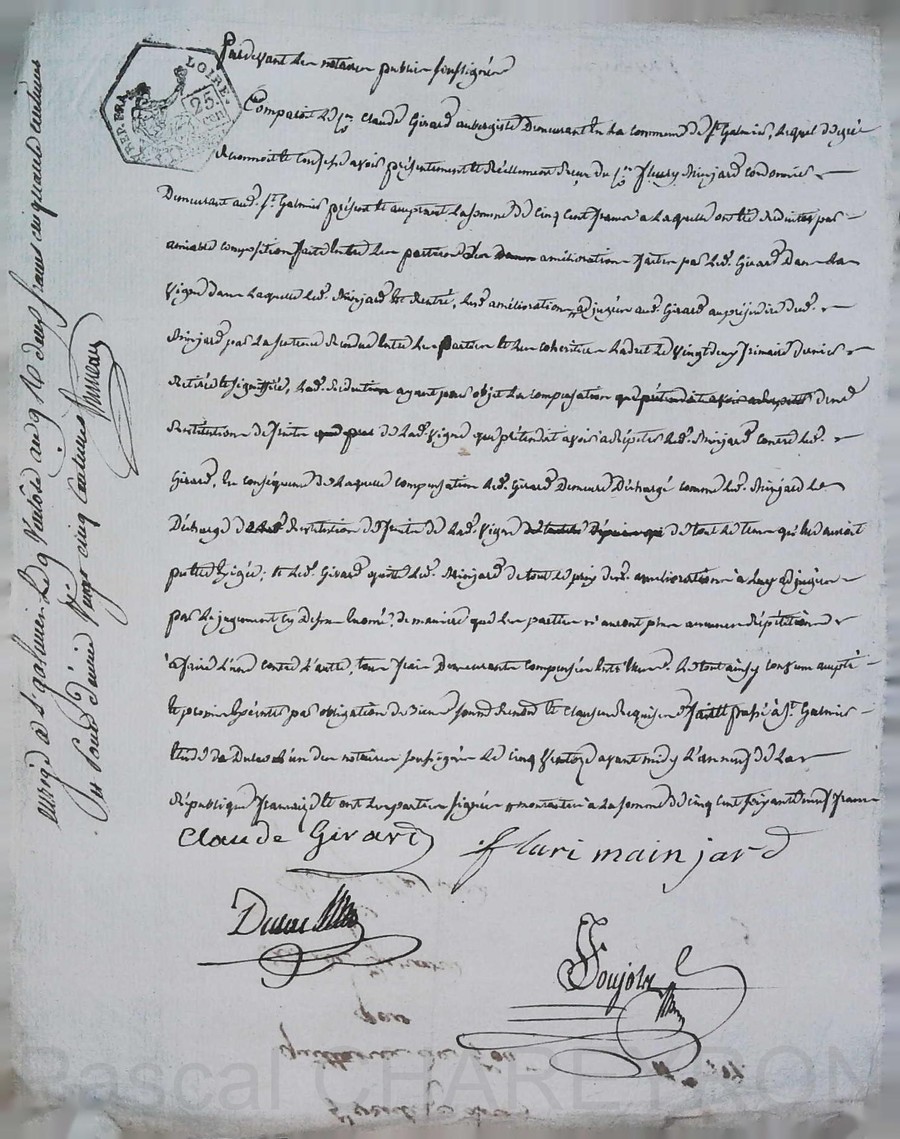 REP. FRA. LOIRE. 25. cen
Pardevant les notaires publics soussignés
Comparoit le sr. Claude Girard aubergiste Demeurant en la commune de St. Galmier, lequel de gré
Reconnoit et confesse avoir présentement et Réellement Reçu du sr. Fleury Minjard cordonnier
Demeurant aud. St. Galmier présent et acceptant la somme de cinq cent francs a laquelle ont été Réduites par
amiable composition faite entre les parties les améliorations faites par led. Girard Dans la
vigne dans laquelle led. Minjard est Rentré, lesd. améliorations adjugées aud. Girard au préjudice dud.
Minjard par la sentence Rendue entre les parties et les cohéritiers Ladret le vingt deux frimaire dernier
et signiffiée, lad. Réduction ayant pour objet la compensation de lad.
Restitution de fruits de lad. vigne que prétendait avoir a Répéter led. Minjard contre led.
Girard, en conséquence de laquelle compensation led. Girard Demeure Déchargé comme led. Minjard le
Décharge de Restitution de fruits de lad. vigne de tout le tems qu'elle auroit
pu être Exigée; et led. Girard quitte led. Minjard de tout le prix desd. améliorations a luy adjugées
par le jugement cy Dessus Enoncé, de manière que les parties n'auront plus aucunes Répétitions
à faire l'une contre l'autre, tous frais Demeurants compensés entr'elles. Le tout ainsy convenu accepté
et promis Exécuter par obligation de Biens et clauses Requises fait et passé à St. Galmier
Etude de Dulac l'un des notaires soussignés le cinq ventoze avant midy l'an neuf de la
République françaize et ont les parties signé montant a la somme de cinq cent soixante neuf francs
Claude Girard
fluri mainjard
Dulac
Soujols
Enregé à St. galmier le 9 Ventose an 9 francs cinquante centimes
vingt cinq centimes
Pascal CHAREYRON